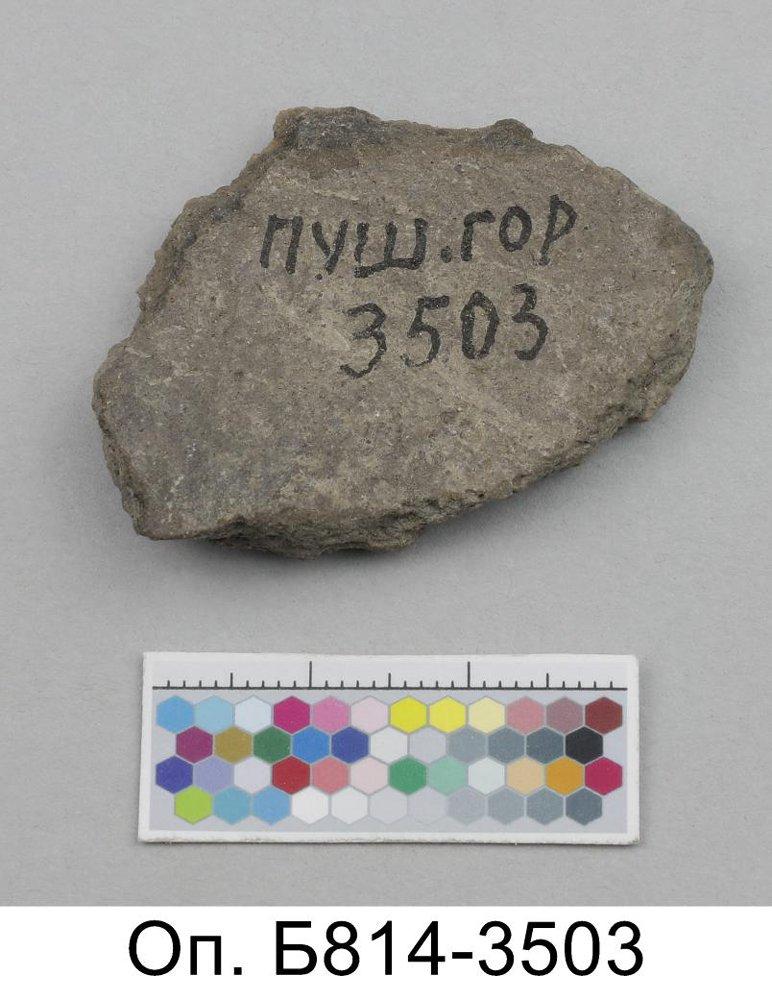 ПУШ.ГОР
3503
Оп. Б814-3503